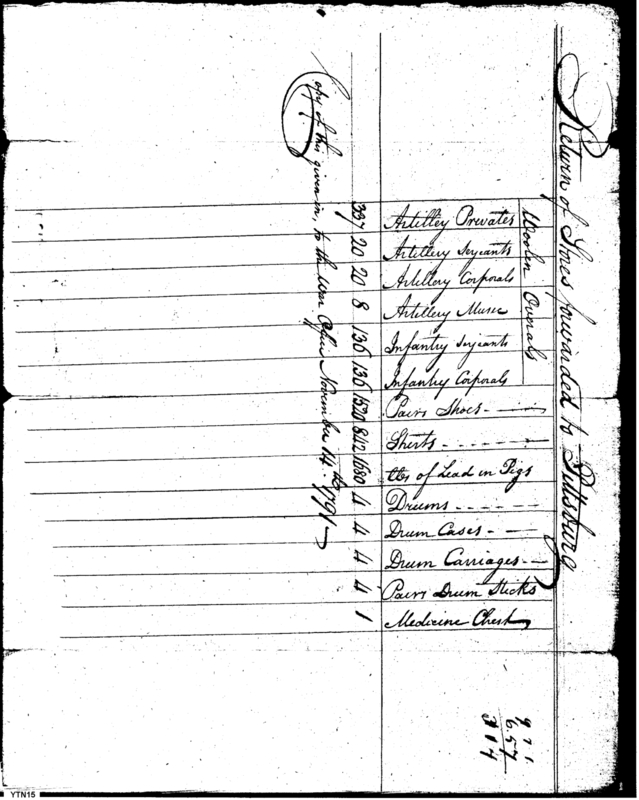 Return of Stores forwarded to Pittsburg
Woolen Overals
Artilley Privates 337
Artillery Serjeants 20
Artillery Corporals 20
Artillery Music 8
Infantry Serjeants 136
Infantry Corporals 136
Pairs Shoes 1520
Shirts 842
lbs of Lead in Pigs 1680
Drums 4
Drum Cases 4
Drum Carriages 4
Pairs Drum Sticks 4
Medicine Chest 1
Copy of this given in, to the War Office November 14th 1791
971
657
314
YTN15